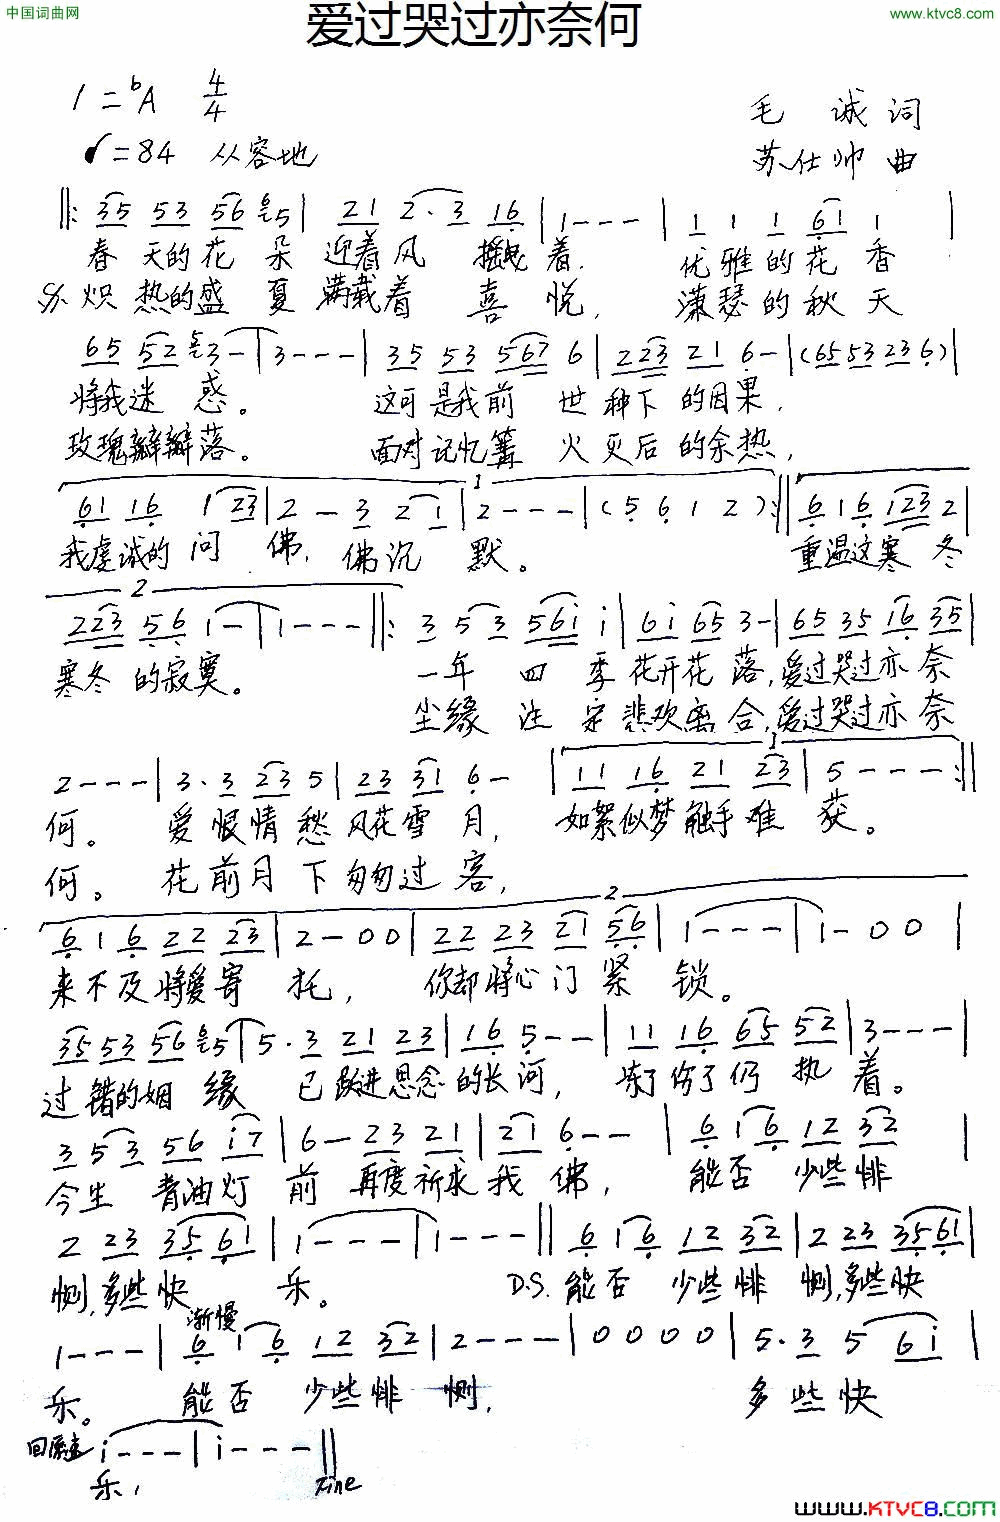 中国词曲网
www.ktvc8.com
爱过哭过亦奈何
1=bA 4/4
毛 诚 词
♩=84 从容地
苏仕帅 曲
‖: 35 53 56 65 | 21 2·3 16 | 1--- | 1 1 1 61 1 |
春天的花朵迎着风 摇曳着. 优雅的花香
炽热的盛夏满载着喜悦, 潇瑟的秋天
65 52 53- | 3--- | 35 53 567 6 | 223 21 6- | (65 53 23 6) |
将我迷惑。 这可是我前世种下的因果,
玫瑰瓣瓣落。 面对记忆篝火灭后的余热,
1
61 16 1 23 | 2-3 21 | 2--- | (5 6 1 2) :‖ 61 6 123 2 |
我虔诚的问佛, 佛沉默。 重温这寒冬
2
223 56 1- | 1--- ‖: 3 53 56i i | 6i 65 3- | 65 35 16 35 |
寒冬的寂寞。 一年四季花开花落, 爱过哭过亦奈
尘缘注定悲欢离合, 爱过哭过亦奈
1
2--- | 3·3 23 5 | 23 31 6- | 11 16 21 23 | 5--- :‖
何。 爱恨情愁风花雪月, 如絮似梦触手难获。
何。 花前月下匆匆过客,
2
61 6 22 23 | 2-00 | 22 23 21 56 | 1--- | 1-00 |
来不及将爱寄托, 你却将心门紧锁。
35 53 56 65 | 5·3 21 23 | 16 5-- | 11 16 65 52 | 3--- |
过错的姻缘 已跃进思念的长河, 冻了伤了仍执着。
3 53 56 i7 | 6-23 21 | 21 6-- | 61 6 12 32 |
今生 青油灯前 再度祈求我佛, 能否 少些悱
2 23 35 61 | 1--- | 1--- ‖ 61 6 12 32 | 2 23 35 61 |
恻, 多些快乐。 D.S. 能否 少些悱恻, 多些快
渐慢
1--- | 61 6 12 32 | 2--- | 0000 | 5·3 5 6i |
乐。 能否 少些悱恻, 多些快
回原速 i--- | i--- ‖
乐, Fine
www.KTVC8.com